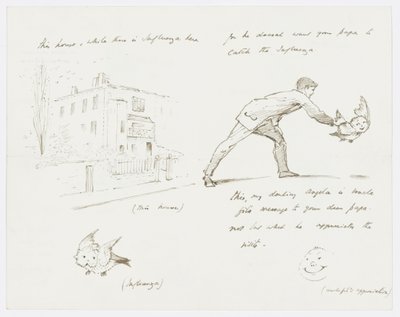 this house, while there is Influenza here
(this house)
(Influenza)
for he doesnt want your Papa to
catch the Influenza
This, my darling Angela is
message to your dear papa.
not but what he appreciates the
visits.
appreciation)